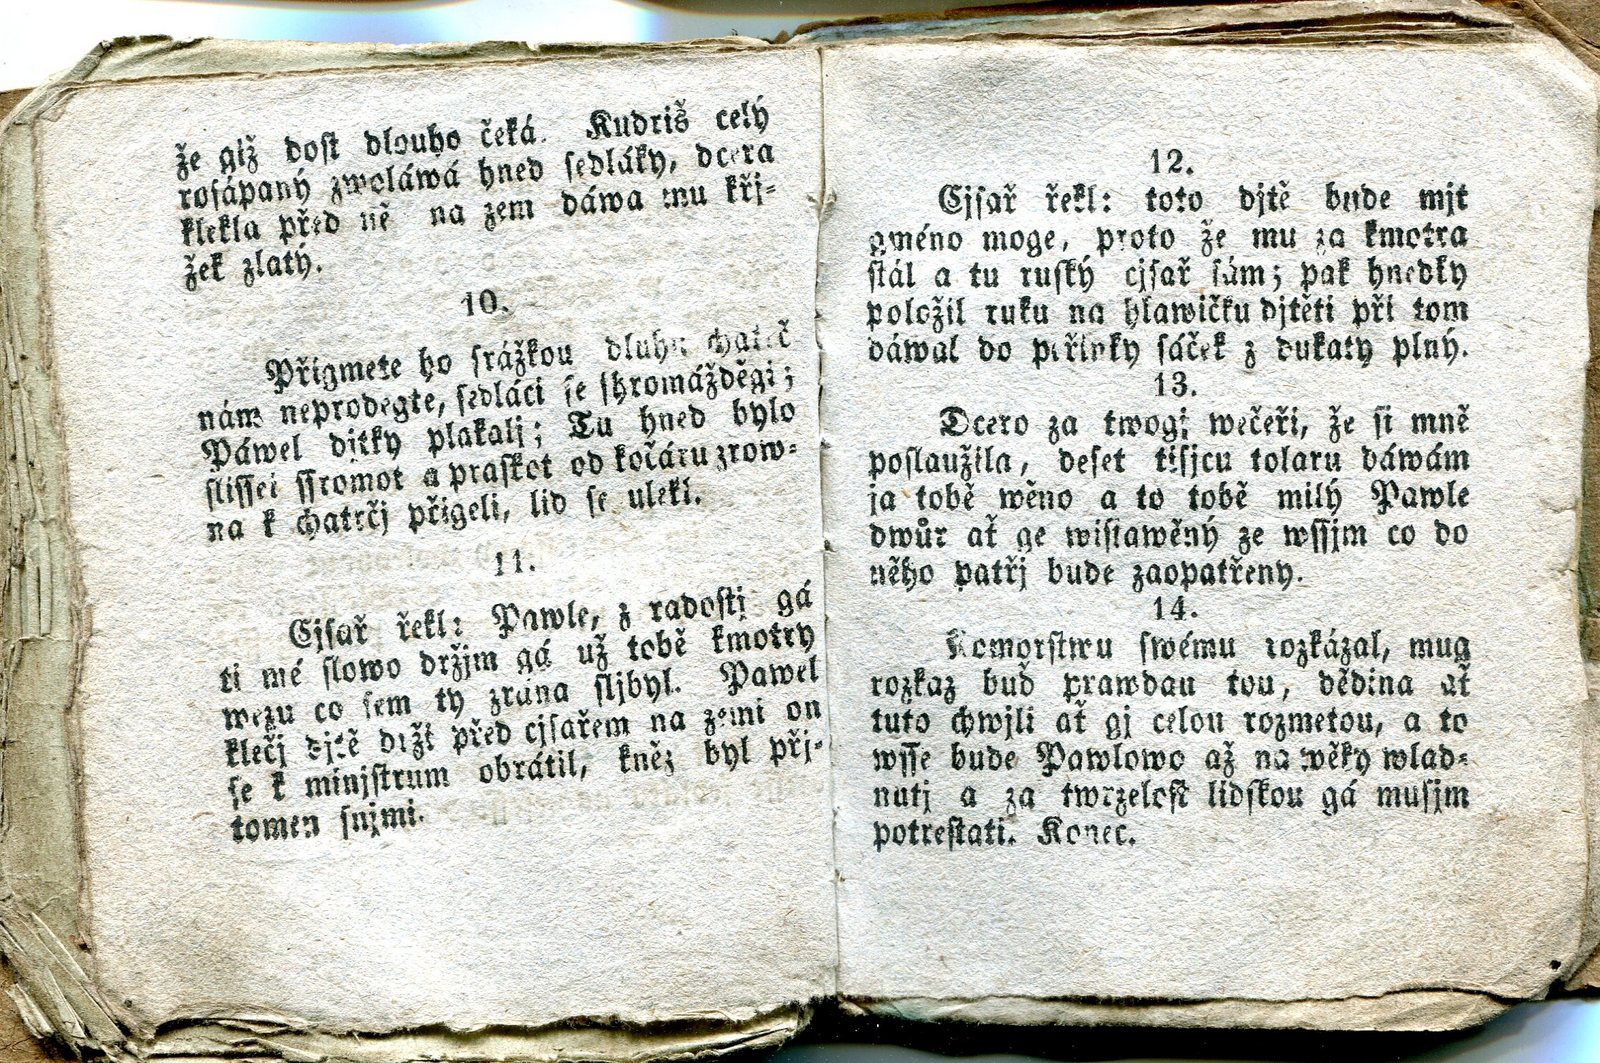 že giž dost dlouho čeká. Kudriš celý
rosápaný zwoláwá hned sedláky, dcera
klekla před ně na zem dáwa mu křj-
žek zlatý.
10.
Přigmete ho srážkou dluhu chatrč
nám neprodegte, sedláci se shromážděgi;
Páwel djtky plakalj; Tu hned bylo
slissei ssromot a praskot od kočáru zrow-
na k chatrčj přigeli, lid se ulekl.
11.
Cjsař řekl: Pawle, z radostj gá
ti mé slowo držjm gá už tobě kmotry
wezu co sem ty zrána sljbyl. Pawel
klečj djtě držj před cjsařem na zemi on
se k minjstrum obrátil, kněz byl přj-
tomen snjmi.
12.
Cjsař řekl: toto djtě bude mjt
gméno moge, proto že mu za kmotra
stál a tu ruský cjsař sám; pak hnedky
položil ruku na hlawičku djtěti při tom
dáwal do peřinky sáček z dukaty plný.
13.
Dcero za twogj wečeři, že si mně
poslaužila, deset tisjcu tolaru dáwám
ja tobě wěno a to tobě milý Pawle
dwůr ať ge wistawěný ze wssjm co do
něho patřj bude zaopatřeny.
14.
Komorstwu swému rozkázal, mug
rozkaz buď prawdau tou, dědina ať
tuto chwjli ať gj celou rozmetou, a to
wsse bude Pawlowo až na wěky wlad-
nutj a za twrzelost lidskou gá musjm
potrestati. Konec.